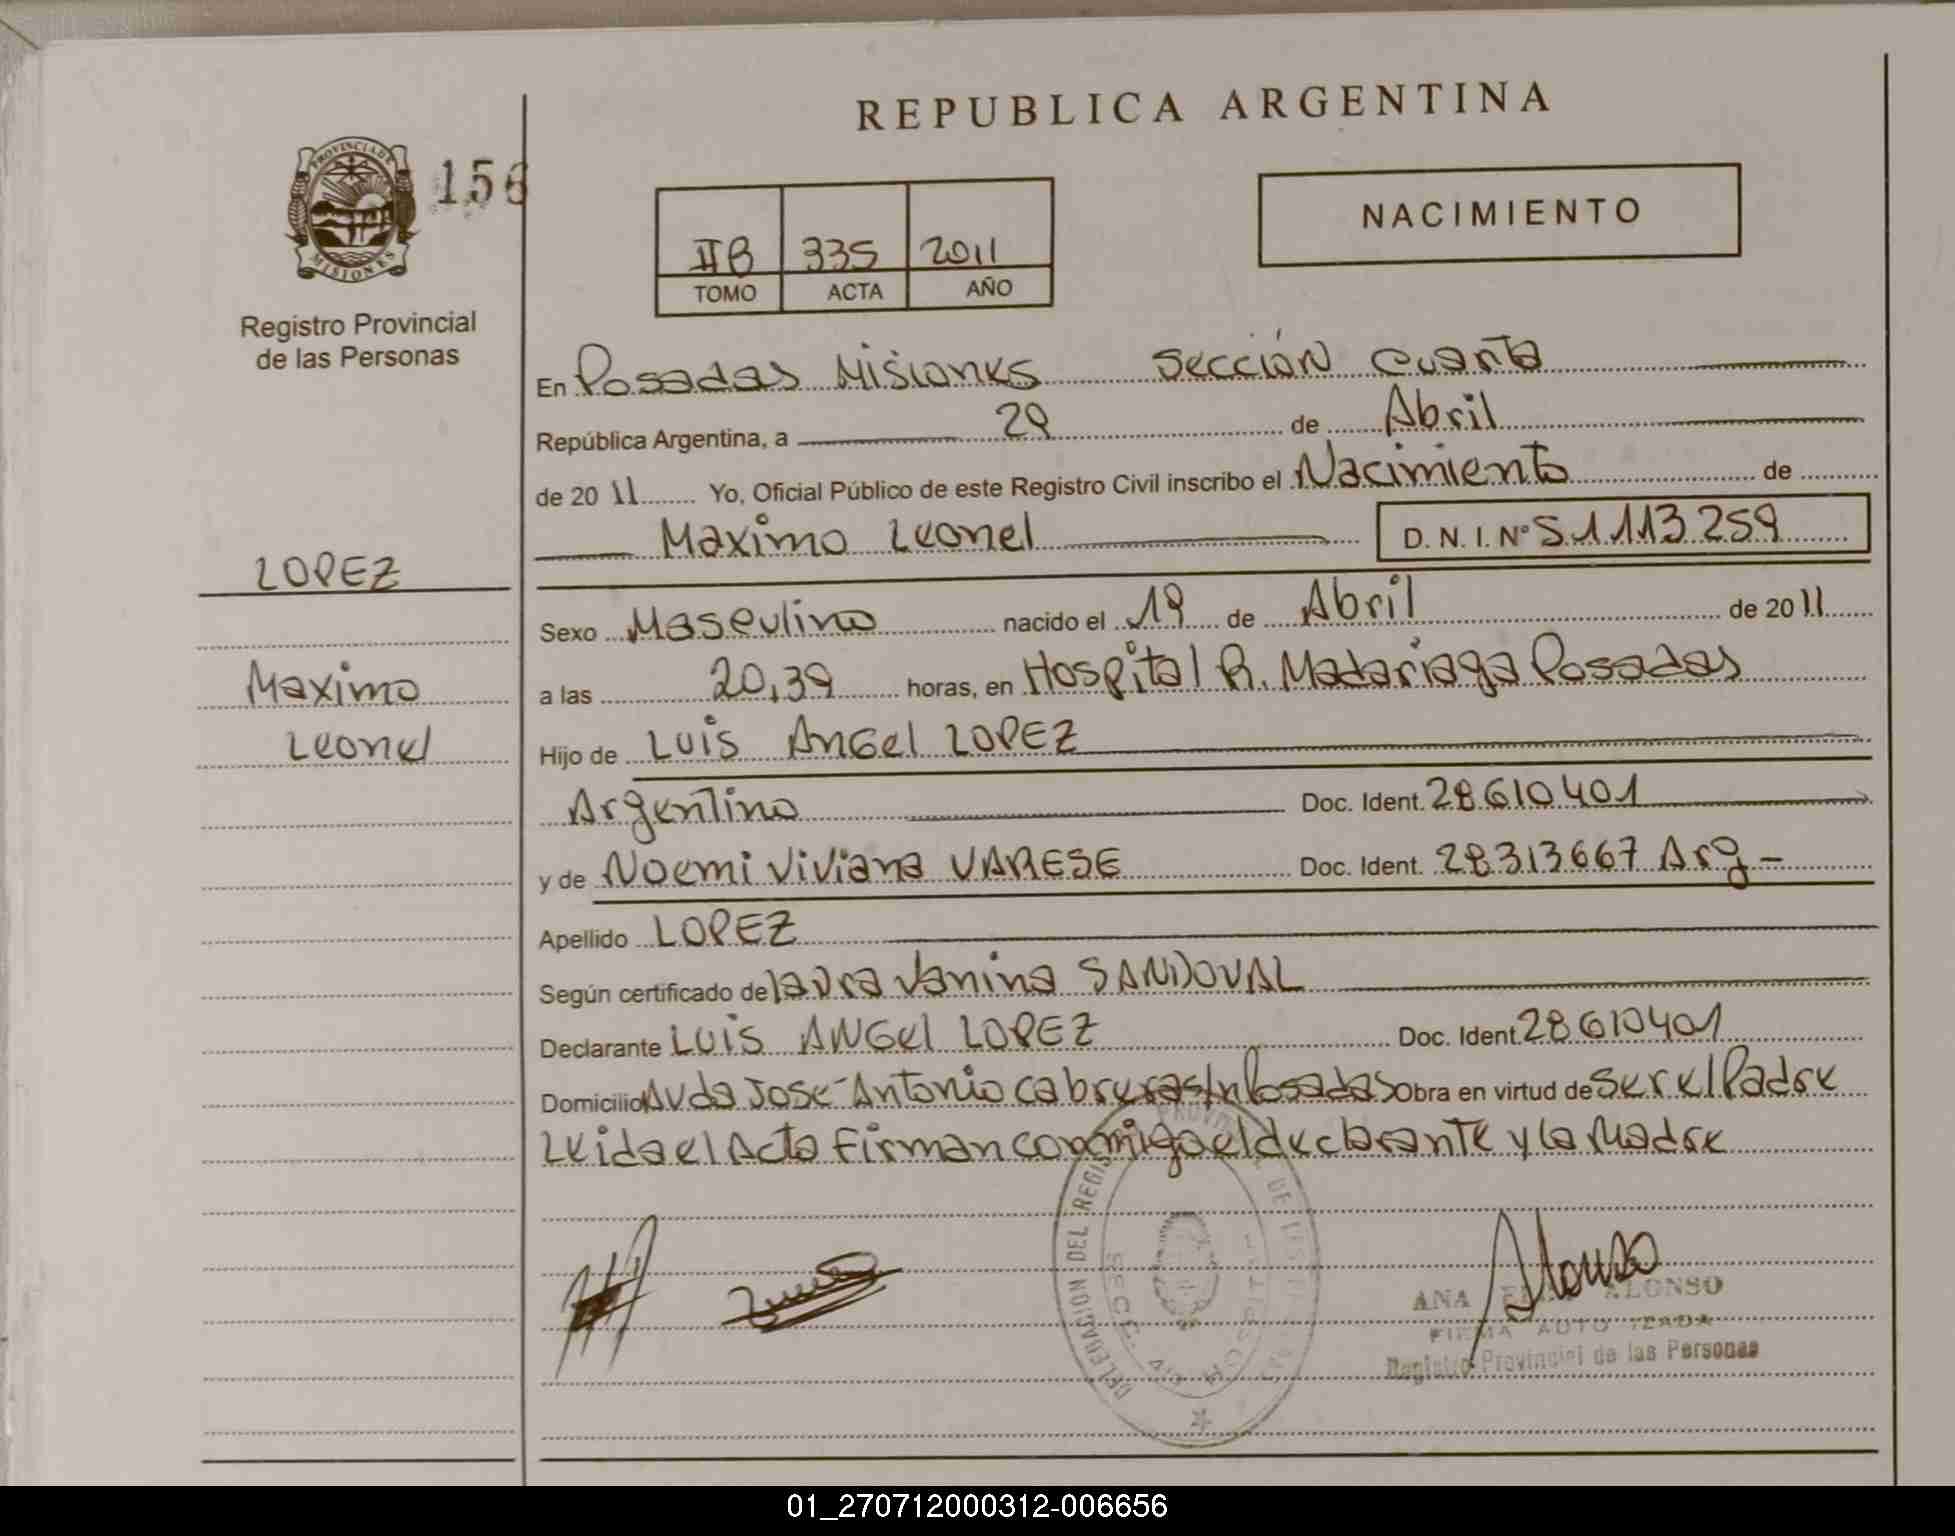 REPUBLICA ARGENTINA
PROVINCIA DE
MISIONES
156
Registro Provincial
de las Personas
IIB 335 2011
TOMO ACTA AÑO
NACIMIENTO
En Posadas Misiones Sección cuarta
República Argentina, a 29 de Abril
de 2011 Yo, Oficial Público de este Registro Civil inscribo el Nacimiento de
Maximo Leonel D.N.I.Nº 51.113.259
LOPEZ
Maximo
Leonel
Sexo Masculino nacido el 19 de Abril de 2011
a las 20,39 horas, en Hospital R. Madariaga Posadas
Hijo de LUIS ANGel LOPEZ
Argentino Doc. Ident. 28610401
y de Noemi Viviana VARESE Doc. Ident. 28313667 Arg -
Apellido LOPEZ
Según certificado de laura Vanina SANDOVAL
Declarante LUIS ANGel LOPEZ Doc. Ident. 28610401
Domicilio Avda Jose Antonio cabrera s/n Posadas Obra en virtud de ser el Padre
Leida el Acta Firman conmigo el declarante y la Madre
DELEGACION DEL REGISTRO PROVINCIAL DE LAS
ANA ALONSO
FIRMA AUTORIZADA
Registro Provincial de las Personas
01_270712000312-006656